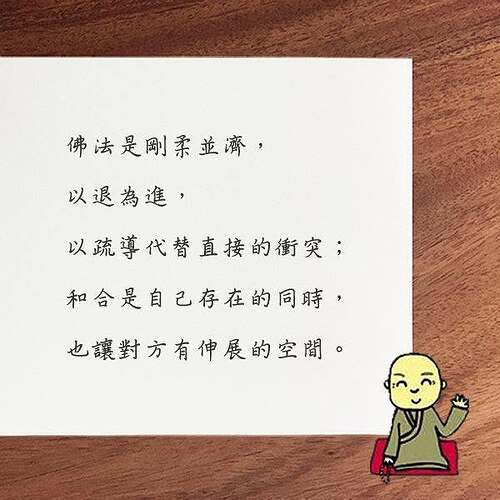 佛法是剛柔並濟，
以退為進，
以疏導代替直接的衝突；
和合是自己存在的同時，
也讓對方有伸展的空間。